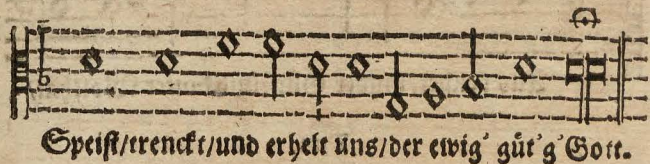 Speist/trenckt/und erhelt uns/der ewig' güt'g' Gott.